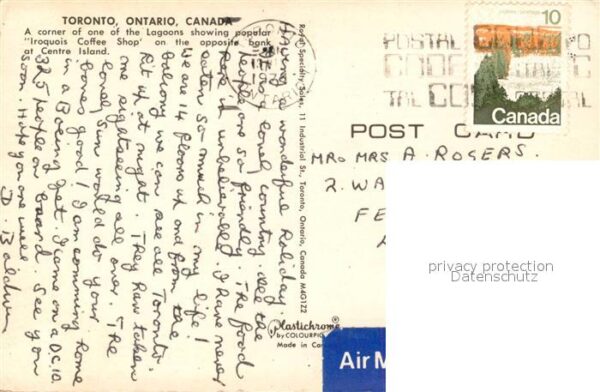 TORONTO, ONTARIO, CANADA
A corner of one of the Lagoons showing popular
'Iroquois Coffee Shop' on the opposite bank
at Centre Island.
Having a wonderful Holiday
its a lovely country. All the
People are so friendly. The food
here is unbelievable. I have never
eaten so much in my life!
We are 14 floors up and from the
balcony we can see all Toronto.
lit up at night. They have taken
me sightseeing all over. The
lovely sun would do your
bones good! I am comming home
in a Boeing Jet. I came on a D.C.10.
325 people on board. See you
soon. Hope you are well
D. Baldwin
Royal Specialty Sales, 11 Industrial St., Toronto, Ontario, Canada M4G1Z2
Plastichrome®
by COLOURPIC
Made in Can
ONTARIO
POSTAL
CODE
POSTAL
10
Canada
POST CARD
MR & MRS A. ROGERS.
2. WA
FE
privacy protection
Datenschutz
Air M